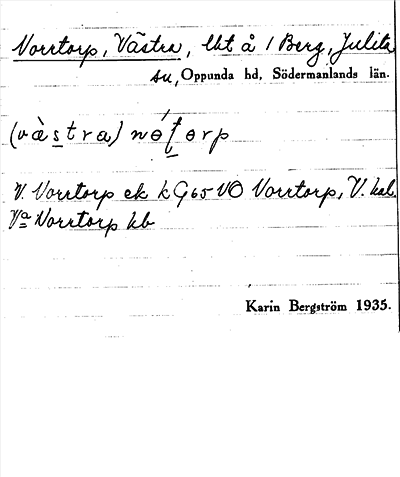 Norrtorp, Västra, lht å 1 Berg, Julita
sn, Oppunda hd, Södermanlands län.
(västra)
V. Norrtorp ek k G65 VÖ Norrtorp, V. kal.
Va Norrtorp kb
Karin Bergström 1935.